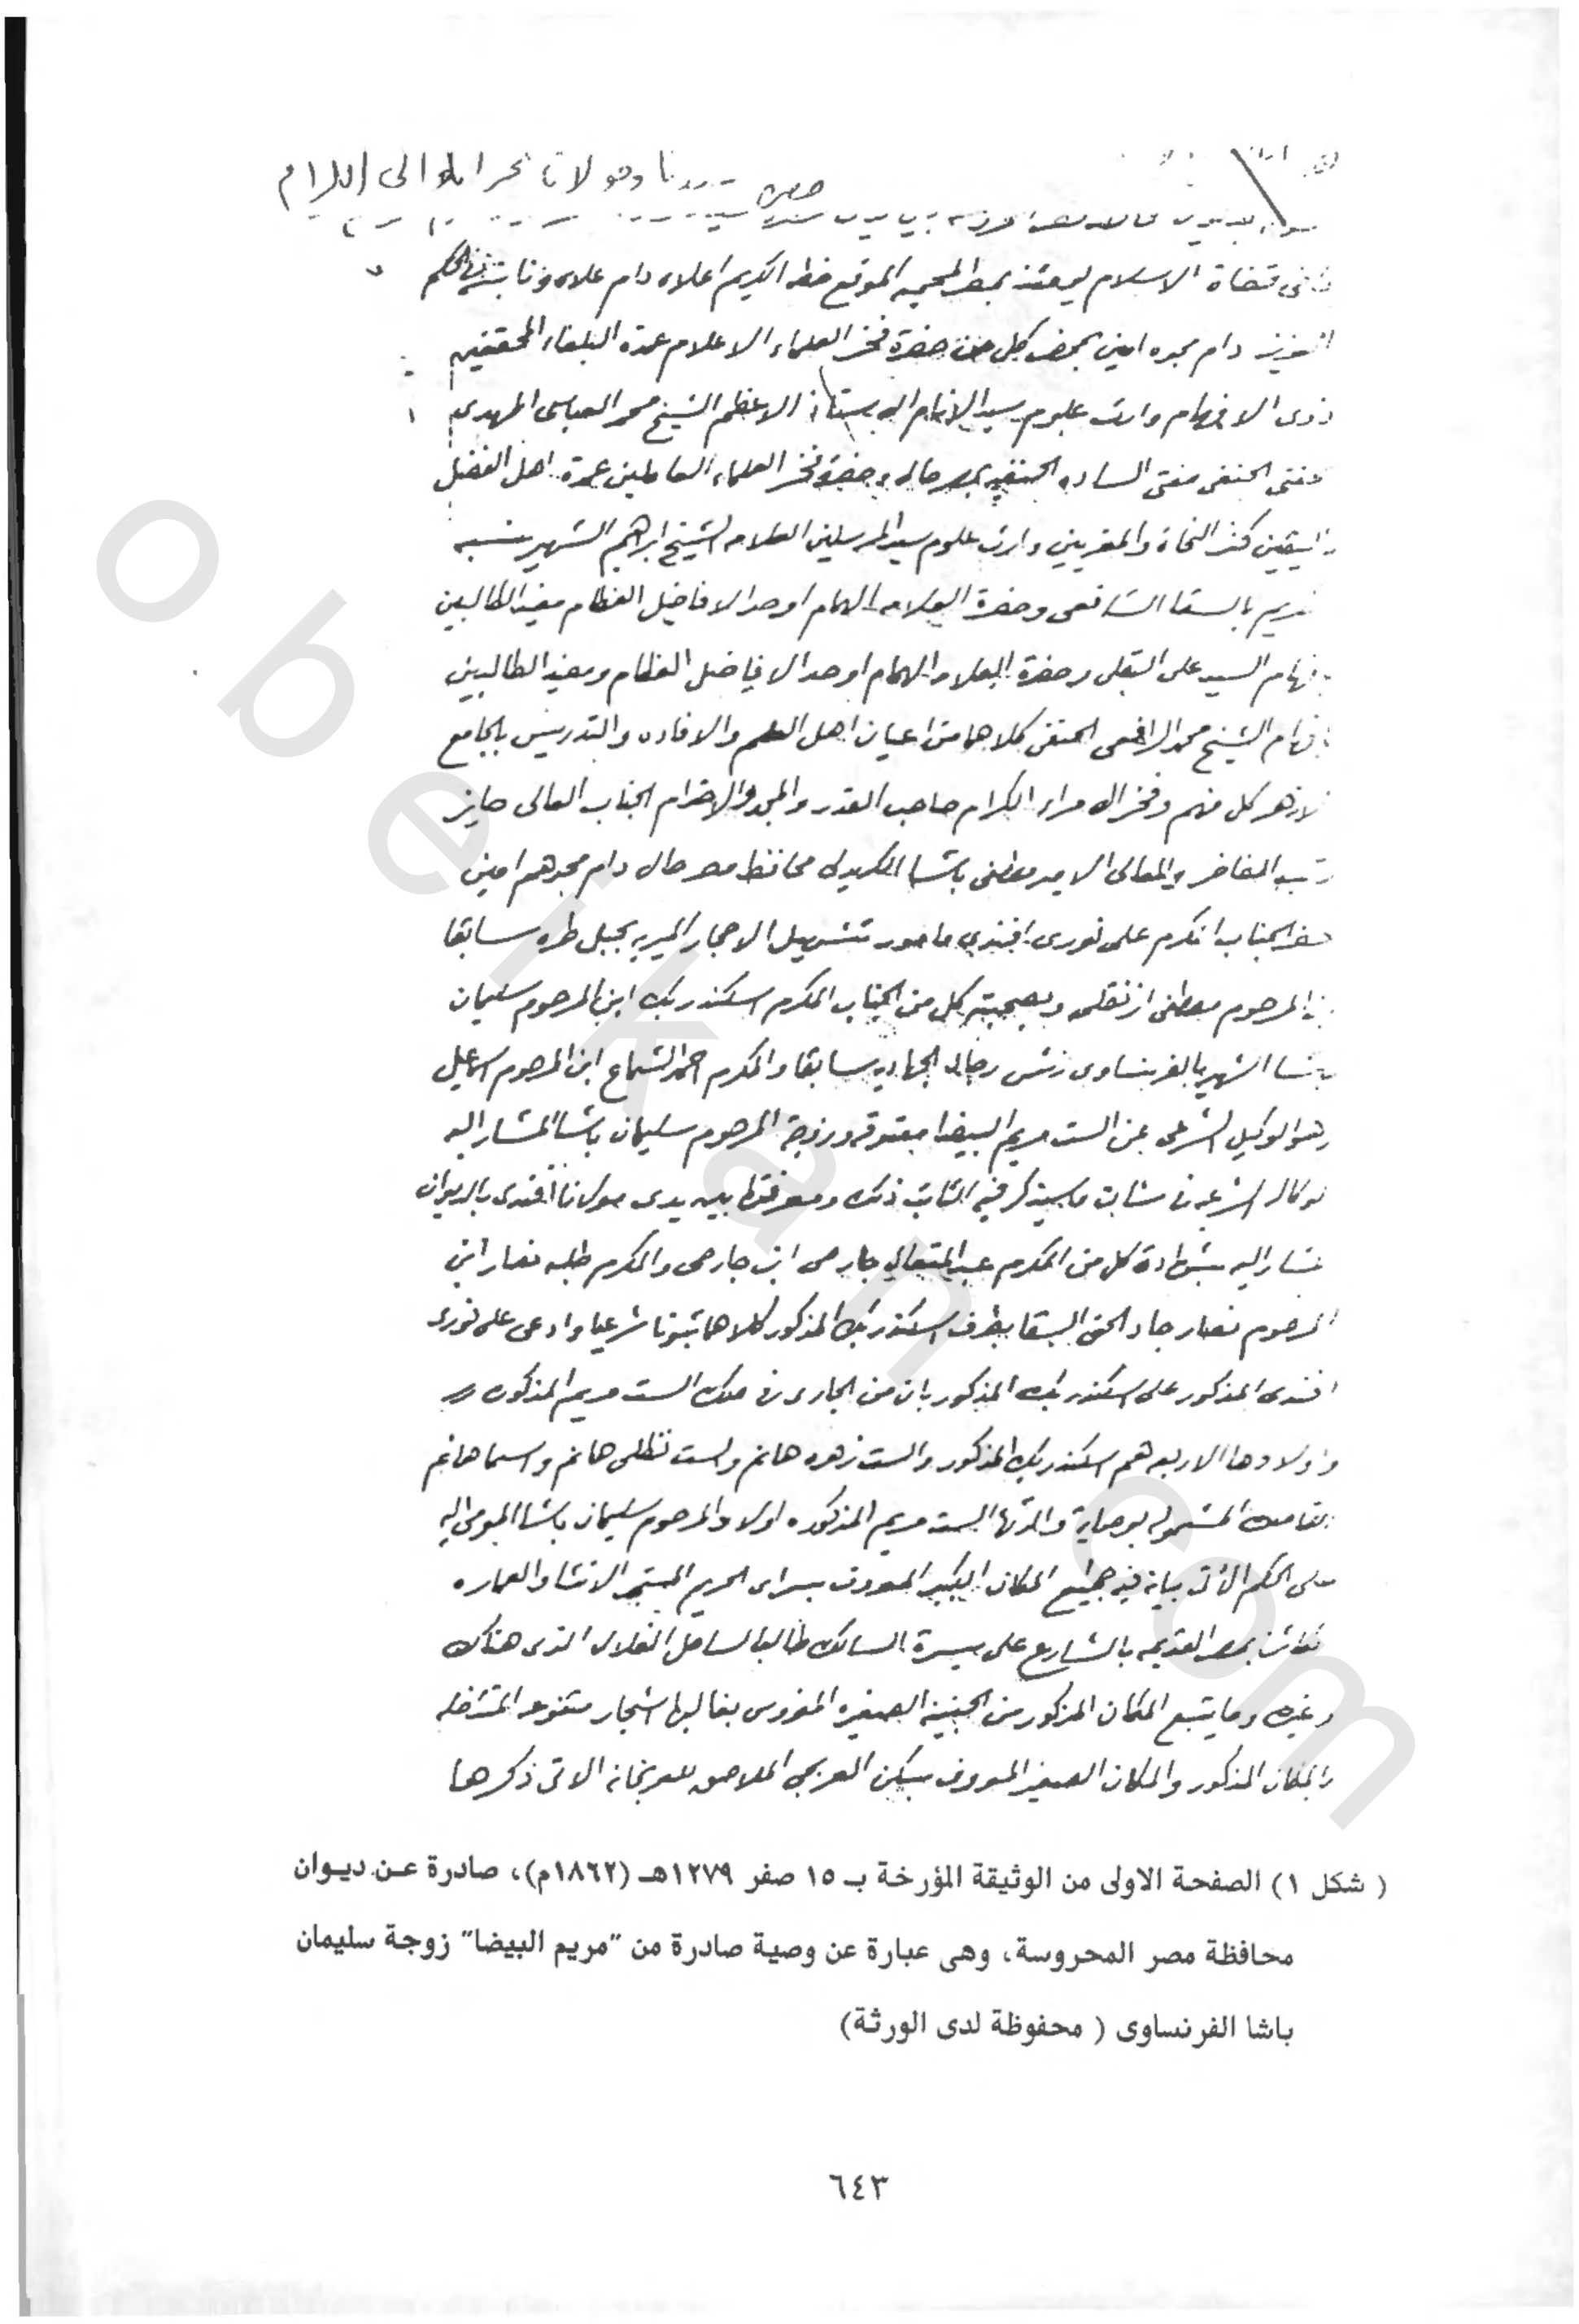 سيدنا ومولانا فخر الموالى الكرام
حضرة
قضاة الاسلام يومئذ بمصر المحميه الموقع خطه الكريم اعلاه دام علاه ونائبه
العزيز دام مجده امين بحضور كل من حضرة فخر العلماء الاعلام عمدة البلغاء المحققين
ذوى الافهام وارث علوم سيد الانام الاستاذ الاعظم الشيخ محمد العباسى المهدى
الحنفى مفتى الساده الحنفيه بمصر حالا وحضرة فخر العلماء العاملين عمدة اهل الفضل
واليقين كنز النحاة والمقريين وارث علوم سيد المرسلين العلامه الشيخ ابراهيم الشهير نسبه
الكريم بالسقا الشافعى وحضرة العلامه الهمام اوحد الافاضل العظام مفيد الطالبين
السيد على البقلى وحضرة العلامه الهمام اوحد الافاضل العظام ومفيد الطالبين
الشيخ محمد الرافعى الحنفى كلاهما من اعيان اهل العلم والافاده والتدريس بالجامع
الازهر كل منهم وفخر الامراء الكرام صاحب القدر والمجد والاحترام الجناب العالى حايز
رتب المفاخر والمعالى الامير مصطفى باشا الكريدلى محافظ مصر حالا دام مجدهم امين
الجناب المكرم على نورى افندى مامور تشهيل الاحجار الميريه بجبل طره سابقا
المرحوم مصطفى وبصحبته كل من الجناب المكرم اسكندر بك ابن المرحوم سليمان
باشا الشهير بالفرنساوى رئيس رجال الجهاديه سابقا والمكرم احمد الشماع ابن المرحوم اسماعيل
وهو الوكيل الشرعى عن الست مريم البيضا معتوقة وزوجة المرحوم سليمان باشا المشار اليه
الوكاله الشرعيه فى شان ما سيذكر فيه الثابت ذلك ومعرفتها بين يدى مولانا افندى بالديوان
المشار اليه بشهادة كل من المكرم عبد المتعالى جارحى ابن جارحى والمكرم طلبه نصار ابن
المرحوم نصار جاد الحق السقا بطرف اسكندر بك المذكور كلاهما ثبوتا شرعيا وادعى على نورى
افندى المذكور على اسكندر بك المذكور بان من الجارى فى ملك الست مريم المذكوره
واولادها الاربعه هم اسكندر بك المذكور والست زهره هانم والست نظلى هانم واسما هانم
المشموله بوصاية والدتها الست مريم المذكوره اولاد المرحوم سليمان باشا المومى اليه
على الحكم الاتى بيانه فيه جميع المكان الكبير المعروف بسراى الحريم المستجد الانشا والعماره
الكائن بمصر القديمه بالشارع على يسرة السالك طالبا لساحل الغلال الذى هناك
وغيره وما يتبع المكان المذكور من الجنينه الصغيره المغروس بغالبها اشجار متنوعه
بالمكان المذكور والمكان الصغير المعروف بسكن العربجى الملاصق للعربخانه الاتى ذكرها
( شكل ١) الصفحة الاولى من الوثيقة المؤرخة ب ١٥ صفر ١٢٧٩هـ (١٨٦٢م)، صادرة عن ديوان
محافظة مصر المحروسة، وهى عبارة عن وصية صادرة من "مريم البيضا" زوجة سليمان
باشا الفرنساوى ( محفوظة لدى الورثة)
٦٤٣
obeikan.com